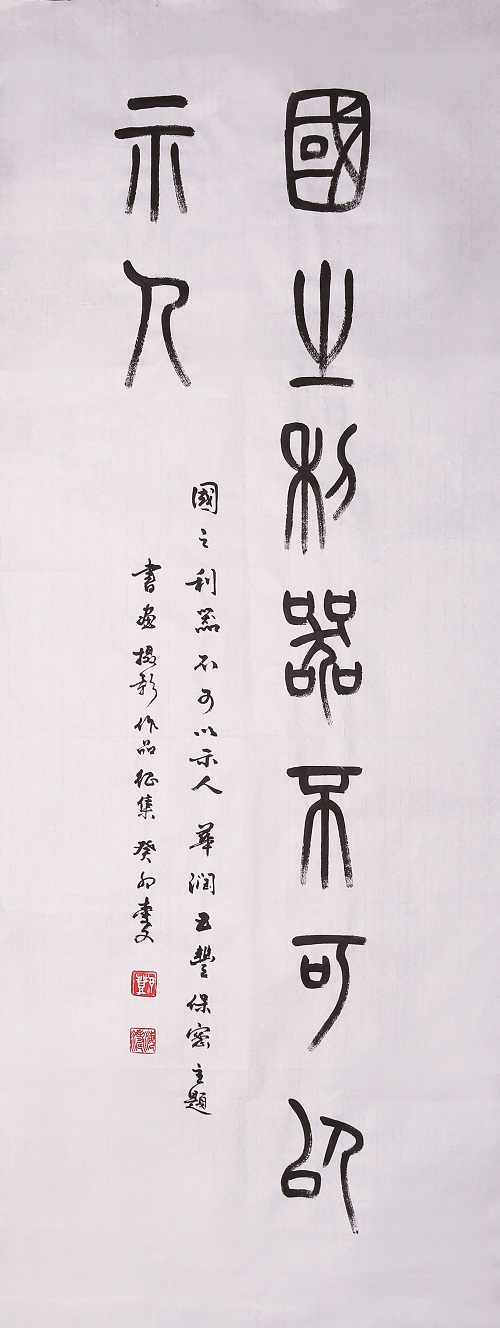 國之利器不可以
示人
國之利器不可以示人華潤五豐保密主題
書畫攝影作品征集癸卯